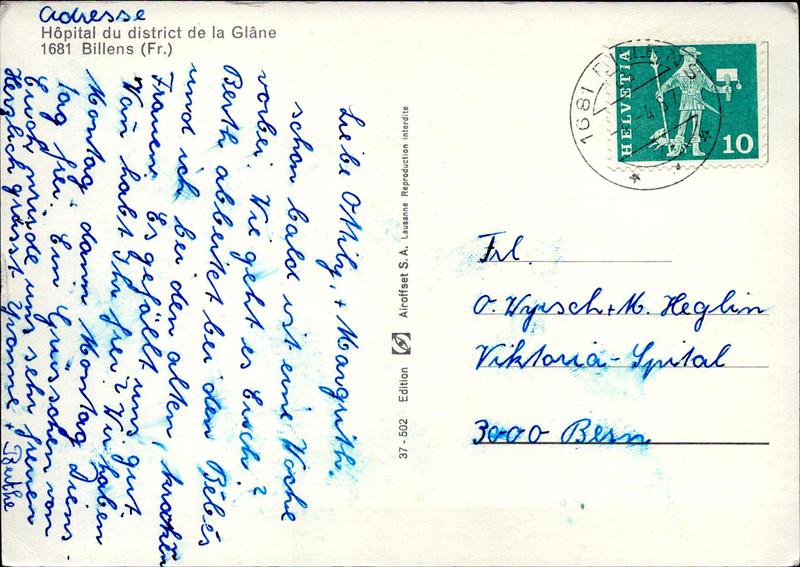 Adresse
Hôpital du district de la Glâne
1681 Billens (Fr.)
Liebe Ottily, + Margrith.
schon bald ist eine Woche
vorbei. Wie geht es Euch?
Berth abbeitet bei den Bébés
und ich bei den alten, kranken
Frauen. Es gefällt uns gut
Wan habt Ihr frei? Wir haben
Montag + dann Montag Diens-
tag frei. Ein Grüsschen von
Euch würde uns sehr freuen
Herzlich grüsst Yvonne + Berthe
37-502 Edition Airoffset S.A. Lausanne Reproduction interdite
HELVETIA
10
1681 BILLENS
Frl.
O. Wyrsch + M. Heglin
Viktoria-Spital
3000 Bern